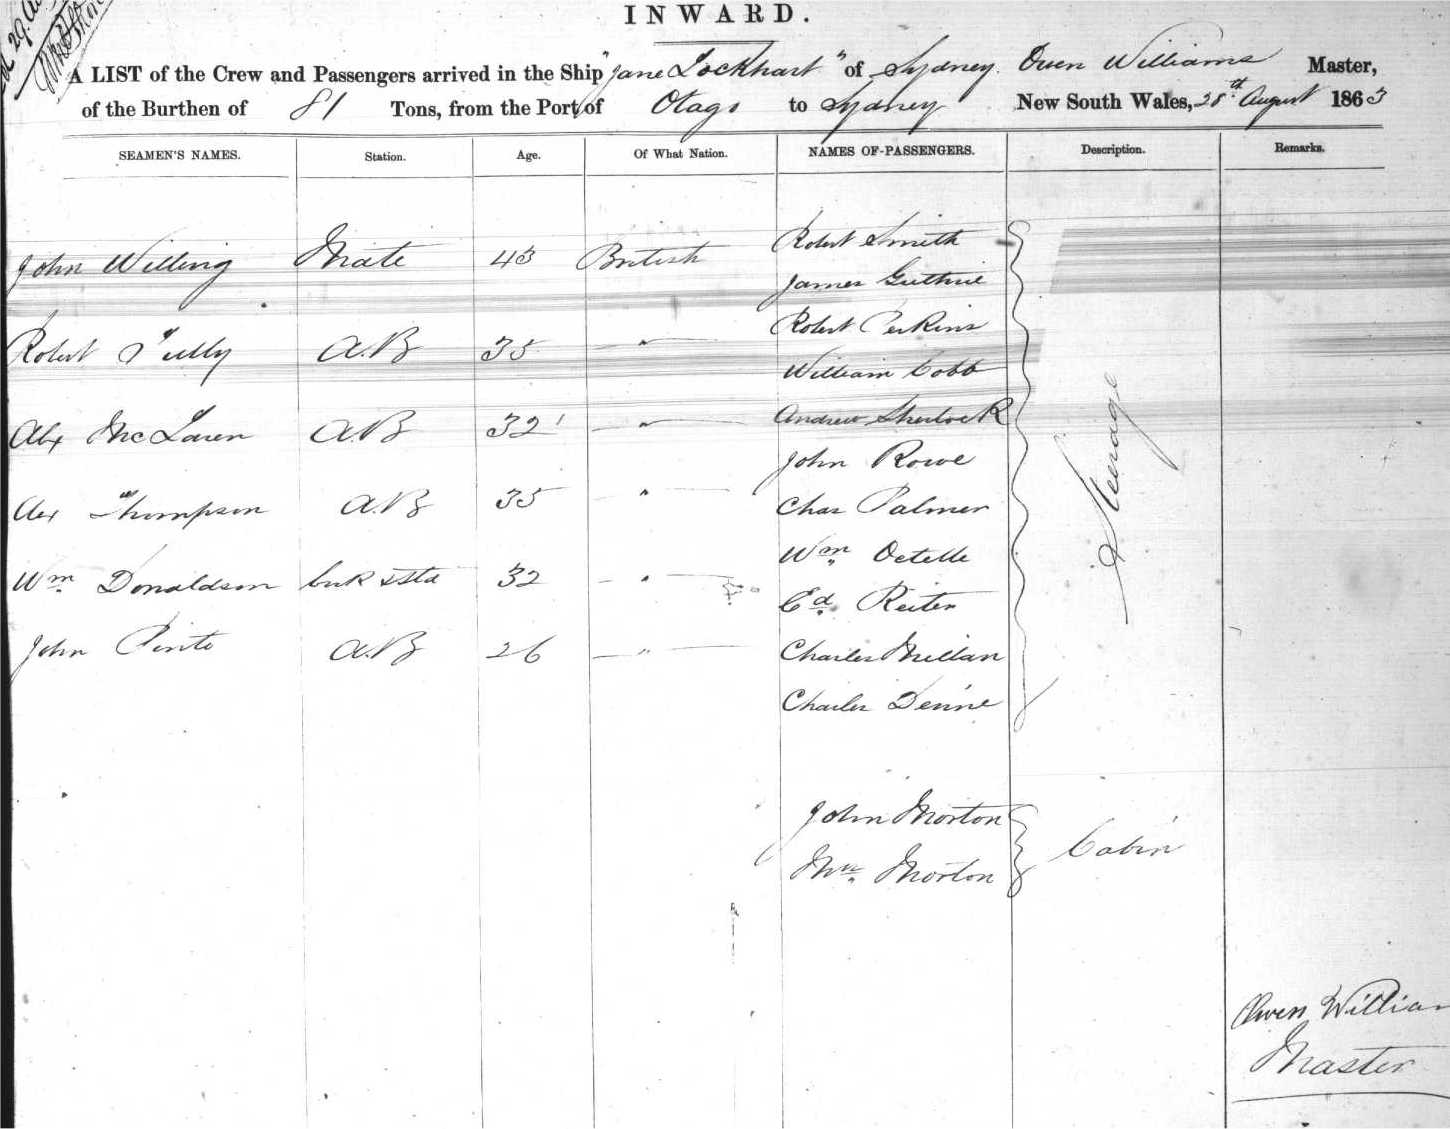 INWARD.
A LIST of the Crew and Passengers arrived in the Ship "Jane Lockhart" of Sydney Owen Williams Master,
of the Burthen of 81 Tons, from the Port of Otago to Sydney New South Wales, 28th August 1863
SEAMEN'S NAMES. Station. Age. Of What Nation. NAMES OF PASSENGERS. Description. Remarks.
John Willing Mate 43 British
Robert Tully A.B 35 "
Alex McLaren A.B 32 "
Alex Thompson A.B 35 "
Wm Donaldson 32 "
John Pinto A.B 26 "
Robert Smith
James Guthrie
Robert Perkins
William Cobb
Andrew Sherlock
John Rowe
Chas Palmer
Wm
Ed Reiter
Charles Millan
Charles
Steerage
John Morton
Mrs Morton
Cabin
Owen William
Master